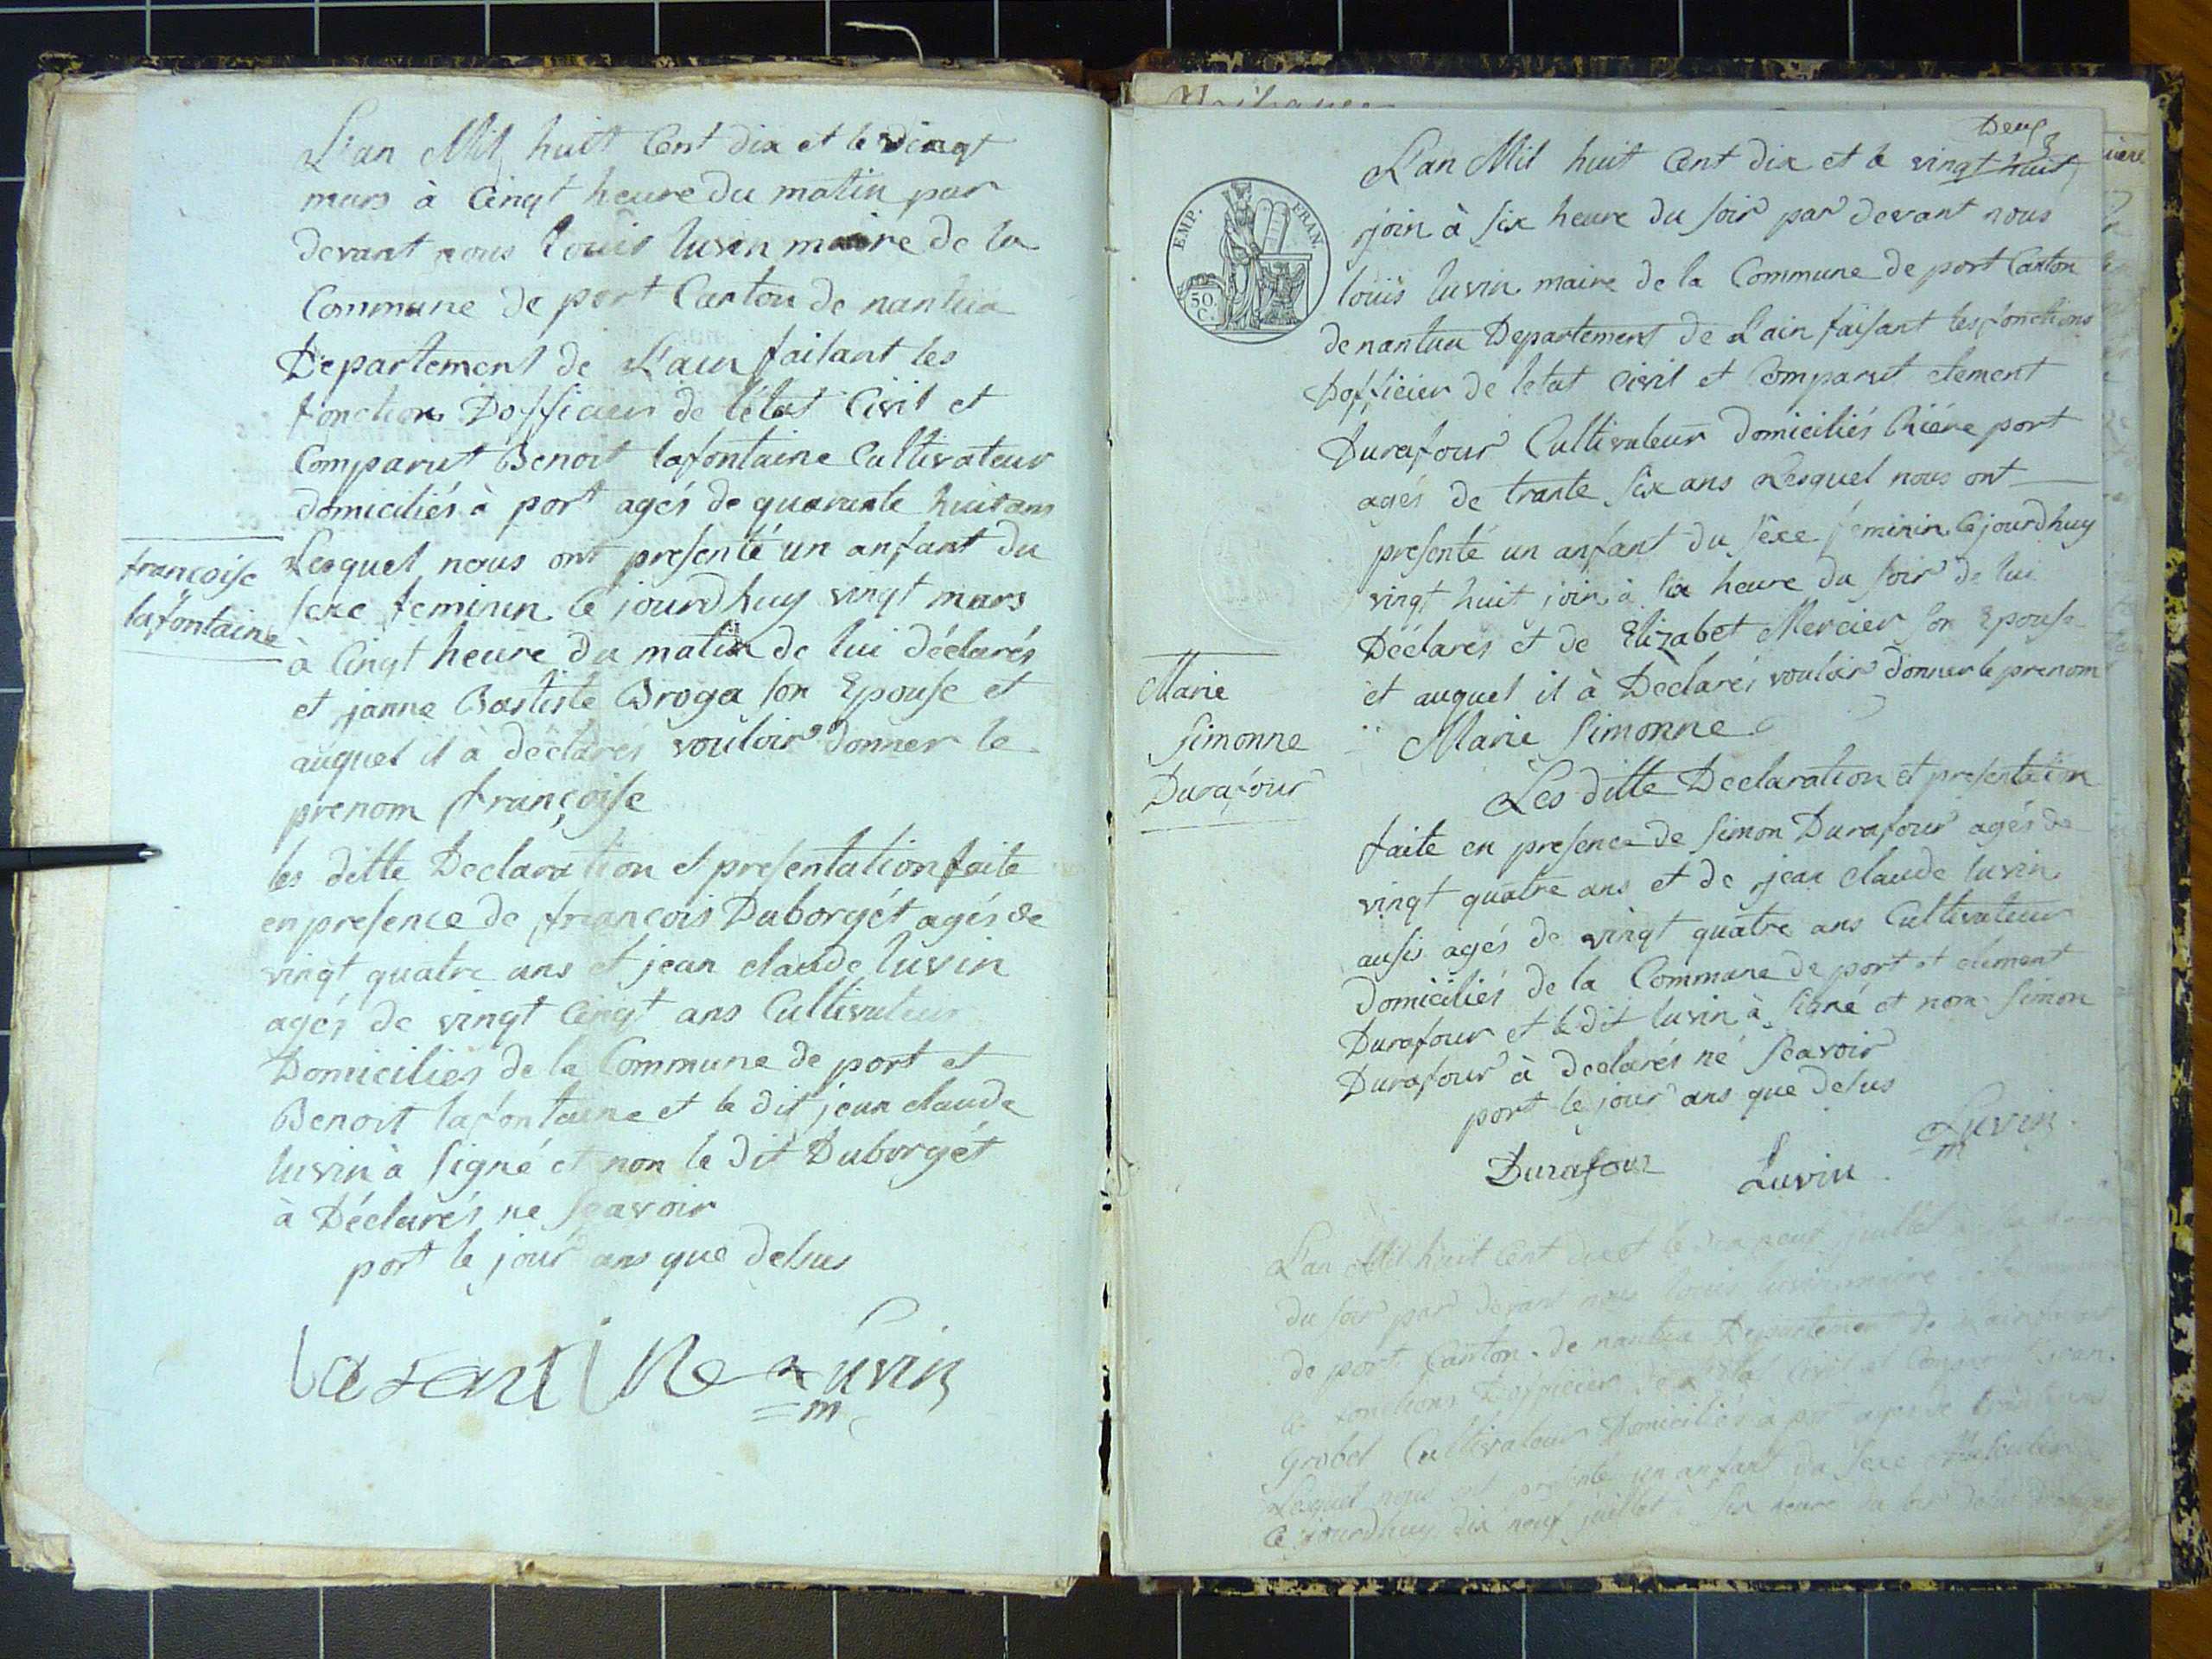 L'an Mil huit Cent dix et le vingt
mars à Cinqt heure du matin par
devant nous Louis luvin maire de la
Commune de port Canton de nantua
Departement de L'ain faisant les
fonction D'officier de l'état Civil et
Comparut Benoit lafontaine Cultivateur
domiciliés à port agés de quarante huit ans
Lesquel nous ont presenté un anfant du
sexe feminin le jourdhuy vingt mars
à Cinqt heure du matin de lui déclarés
et janne Bastiste Broga son Epouse et
auquel il à déclarés vouloir donner le
prenom françoise
les ditte Declaration et presentation faite
en presence de françois Duborgét agés de
vingt quatre ans et jean claude luvin
agés de vingt Cinqt ans Cultivateur
Domiciliés de la Commune de port et
Benoit lafontaine et le dit jean claude
luvin à signé et non le dit Duborgét
à Déclarés ne Sçavoir
port le jour ans que desus
françoise
lafontaine
Luvin
m
Deux
L'an Mil huit Cent dix et le vingt huit
join à six heure du soir par devant nous
louis luvin maire de la Commune de port Canton
de nantua Departement de L'ain faisant les fonctions
Dofficier de letat Civil et Comparut clement
Durafour Cultivateur domiciliés port
agés de trante six ans Lesquel nous ont
presenté un anfant du sexe feminin le jourdhuy
vingt huit join à six heure du soir de lui
Déclarés et de Elizabet Mercier son Epouse
et auquel il à Declarés vouloir donner le prenom
Marie Simonne
Les ditte Declaration et presentation
faite en presence de Simon Durafour agés de
vingt quatre ans et de jean claude luvin
ausis agés de vingt quatre ans Cultivateur
Domiciliés de la Commune de port et clement
Durafour et le dit luvin à signé et non Simon
Durafour à declarés né Sçavoir
port le jour ans que desus
Marie
Simonne
Durafour
EMP. FRAN.
50.
C.
Durafour Luvin Luvin
m
L'an Mil huit Cent dix et le dix neuf juillet à six heure
du soir par devant nous louis luvin maire de la commune
de port Canton de nantua Departement de L'ain faisant
les fonctions Dofficier de l'etat Civil et Comparut jean
Grobel Cultivateur Domiciliés à port agés de
Lesquel nous ont presenté un anfant du sexe Masculin
le jourdhuy dix neuf juillet à six heure du soir de lui